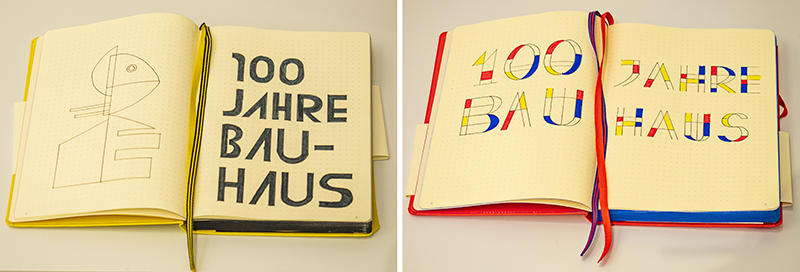 100
JAHRE
BAU-
HAUS
100 JAHRE
BAU HAUS